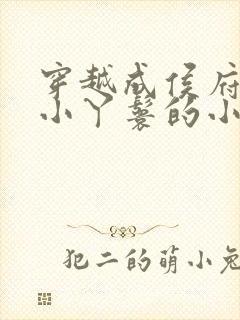 穿越成侯府
小丫鬟的小
犯二的萌小兔